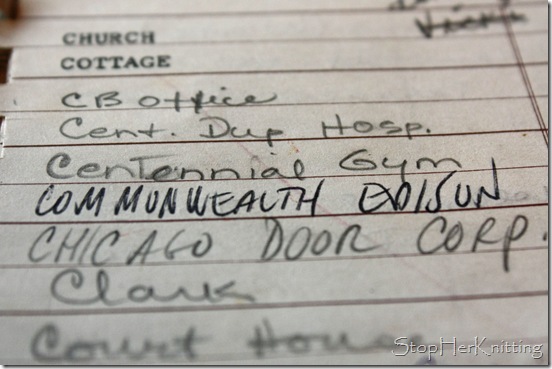 CHURCH
COTTAGE
CB office
Cent. Dup Hosp.
Centennial Gym
COMMONWEALTH EDISON
CHICAGO DOOR CORP.
Clark
Court House
StopHerKnitting